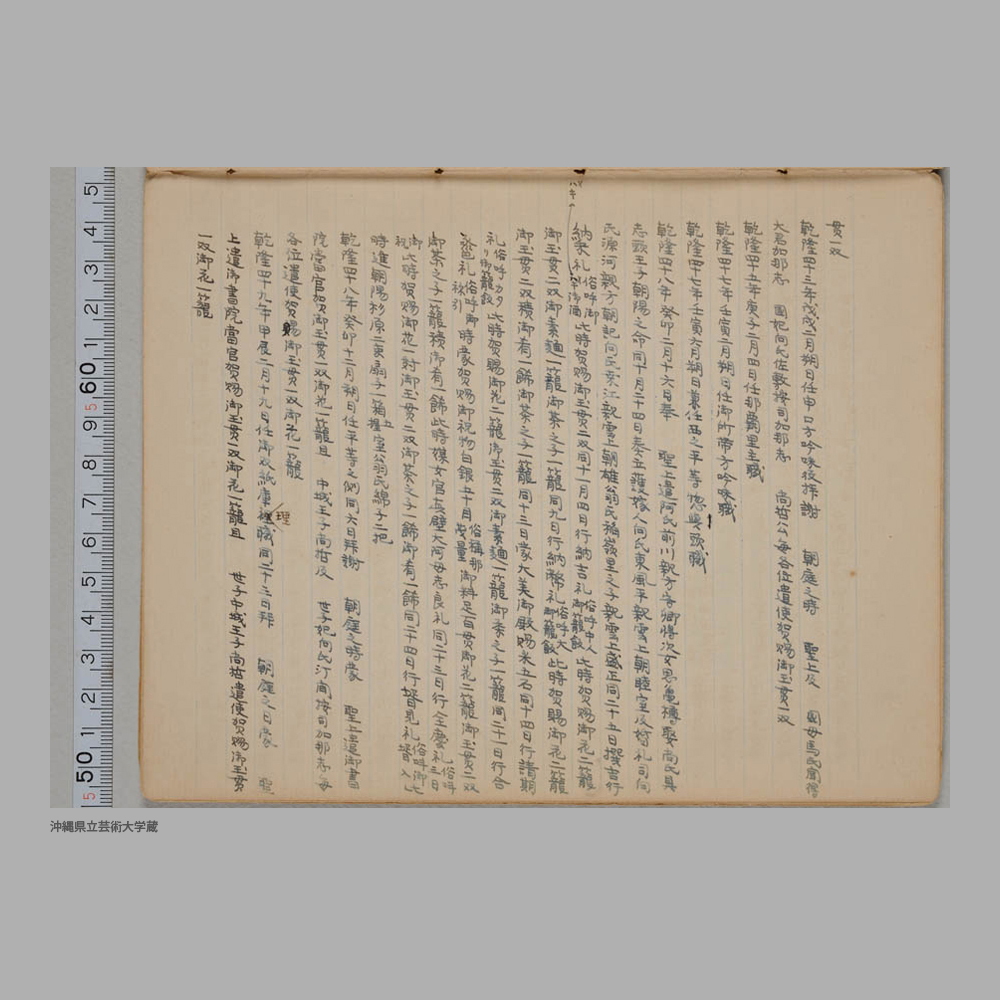 貫一双
乾隆四十三年戊戌二月朔日任申口方吟味役拝謝 朝庭之時 聖上及 国母馬氏
大君加那志 国妃向氏佐敷按司加那志 尚哲公毎各位遣使賀賜御玉貫一双
乾隆四十五年庚子二月四日任那覇里主職
乾隆四十七年壬寅二月朔日任御所帯方吟味職
乾隆四十七年壬寅六月朔日兼任西之平等惣與頭職
乾隆四十八年癸卯二月十六日奉 聖上遣阿氏前川親方守卿憐次女思亀樽娶向氏具
志頭王子朝陽之命同十月二十四日奉 媒人向氏東風平親雲上朝睦室及婚礼司向
氏源河親方朝紀向氏東江親雲上朝雄翁氏稲嶺里之子親雲上盛正同二十五日擇吉行
納采礼俗呼御 御酒此時賀賜御玉貫二双同十一月四日行納吉礼俗呼中入御籠飯此時賀賜御花二籠
御玉貫二双御素麺一籠御茶之子一籠同九日行納幣礼俗呼大御籠飯此時賀賜御花二籠
御玉貫二双積御肴一飾御茶之子一籠同十三日蒙大美御殿賜米五石同十四日行請期
礼俗呼カタリ御籠飯此時賀賜御花二籠御玉貫二双御素麺一籠御茶之子一籠同二十一日行合
巹礼俗呼御 引時蒙賀賜御祝物白銀五十目俗称那 量御料足百貫御花二籠御玉貫二双
御茶之子一籠積御肴一飾此時媒女官真壁大阿母志良礼同二十三日行全席礼俗呼三日
御祝此時賀賜御花一対御玉貫二双御茶之子一飾御肴一飾同二十四日行婿見礼俗呼御七 婿入
時進朝陽杉原二束扇子一箱進室翁氏綿子二把
乾隆四十八年癸卯十二月朔日任平等之側同六日拝謝 朝庭之時蒙 聖上遣御書
院当官賀賜御玉貫一双御花一籠且 中城王子尚哲及 世子妃向氏汀間按司加那志毎
各位遣使賀賜御玉貫一双御花一籠
乾隆四十九年甲辰二月十九日任御双紙庫理職同二十三日拝 朝庭之日蒙 聖
上遣御書院当官賀賜御玉貫一双御花一籠且 世子中城王子尚哲遣使賀賜御玉貫
一双御花一籠
沖縄県立芸術大学蔵